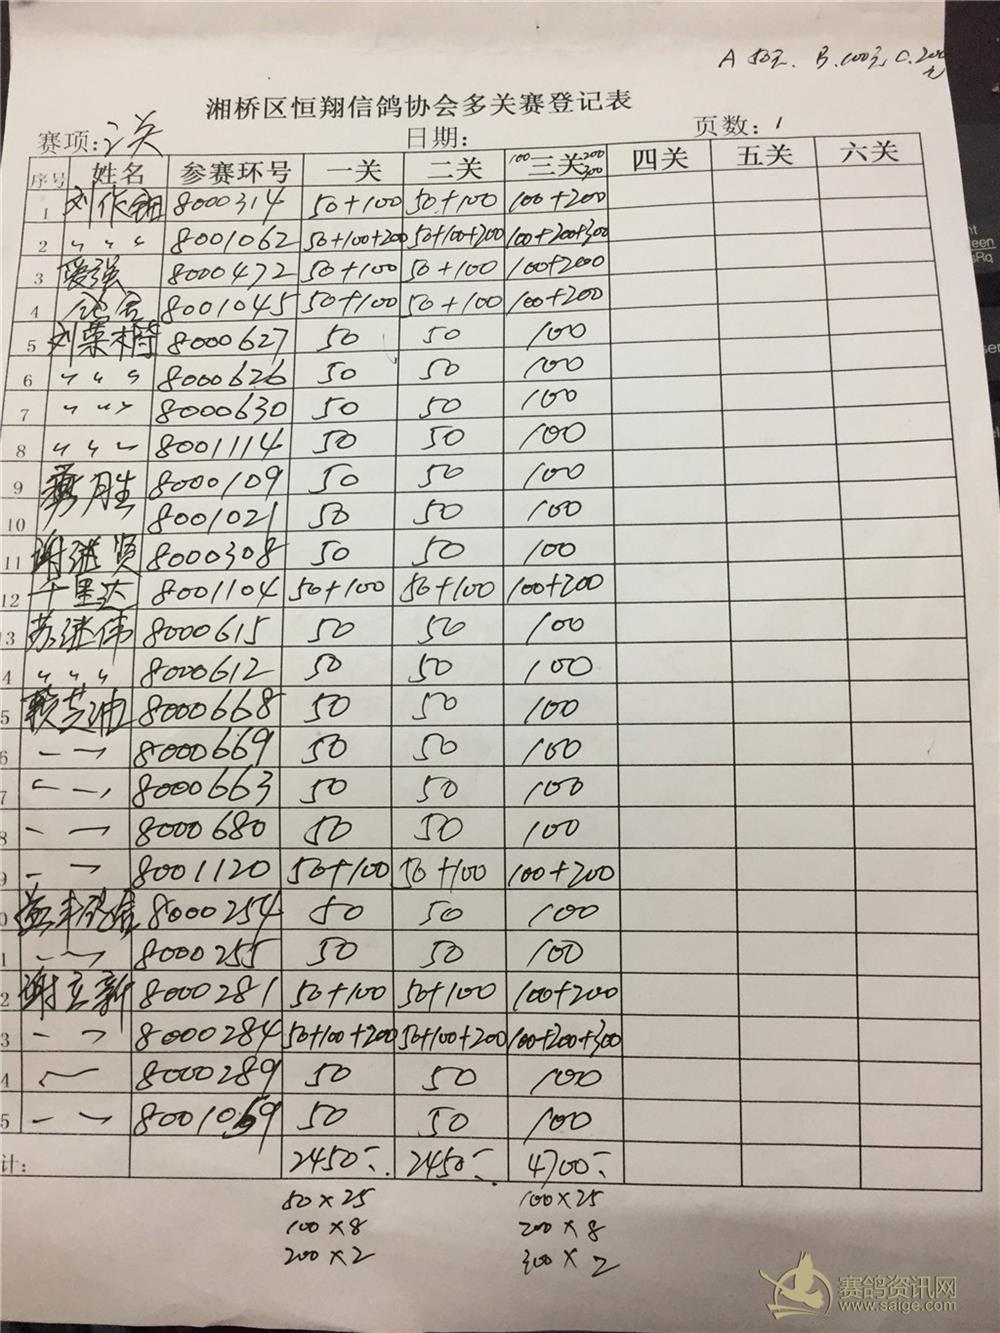 A 50元. B.100元 C.200元
湘桥区恒翔信鸽协会多关赛登记表
赛项:三关 日期: 页数:1
序号 姓名 参赛环号 一关 二关 100三关200 300 四关 五关 六关
1 刘作钿 8000314 50+100 50+100 100+200
2 〃 〃 〃 8001062 50+100+200 50+100+200 100+200+300
3 爱强 8000472 50+100 50+100 100+200
4 8001045 50+100 50+100 100+200
5 刘栗樹 8000627 50 50 100
6 〃 〃 〃 8000626 50 50 100
7 〃 〃 〃 8000630 50 50 100
8 〃 〃 〃 8001114 50 50 100
9 胜 8000109 50 50 100
10 8001021 50 50 100
11 谢继贤 8000308 50 50 100
12 千里达 8001104 50+100 50+100 100+200
3 苏继伟 8000615 50 50 100
4 〃 〃 〃 8000612 50 50 100
5 8000668 50 50 100
6 8000669 50 50 100
7 8000663 50 50 100
8 8000680 50 50 100
9 8001120 50+100 50+100 100+200
0 8000254 50 50 100
1 8000255 50 50 100
2 谢立新 8000281 50+100 50+100 100+200
3 8000284 50+100+200 50+100+200 100+200+300
4 8000289 50 50 100
5 8001059 50 50 100
计: 2450 2450 4700
50×25 100×25
100×8 200×8
200×2 300×2
赛鸽资讯网
www.saige.com